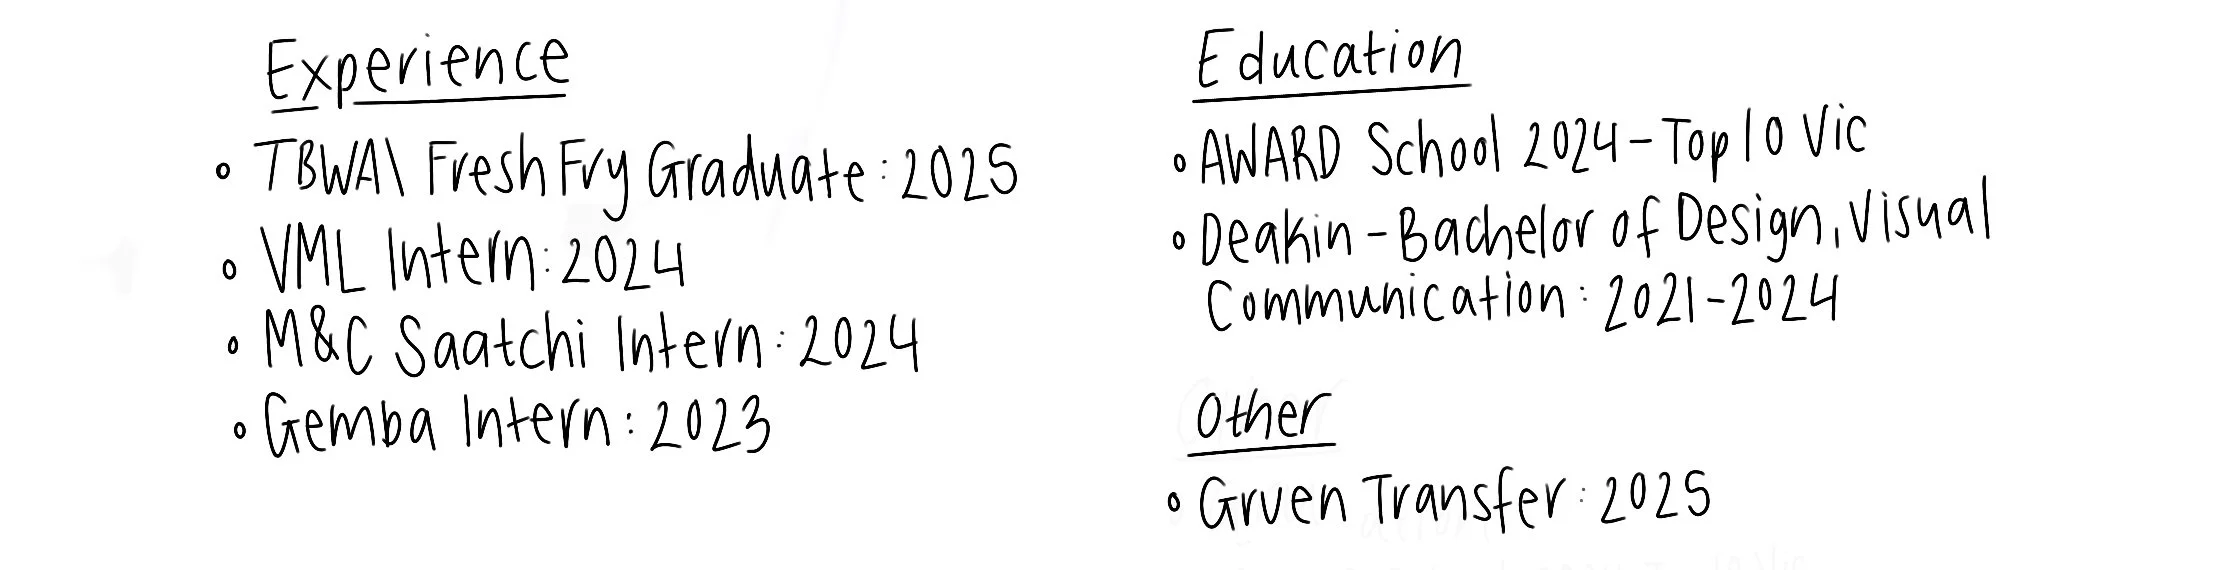 Experience
TBWA\ Fresh Fry Graduate: 2025
VML Intern: 2024
M&C Saatchi Intern: 2024
Gemba Intern: 2023
Education
AWARD School 2024 - Top 10 Vic
Deakin - Bachelor of Design, Visual
Communication: 2021-2024
Other
Gruen Transfer: 2025